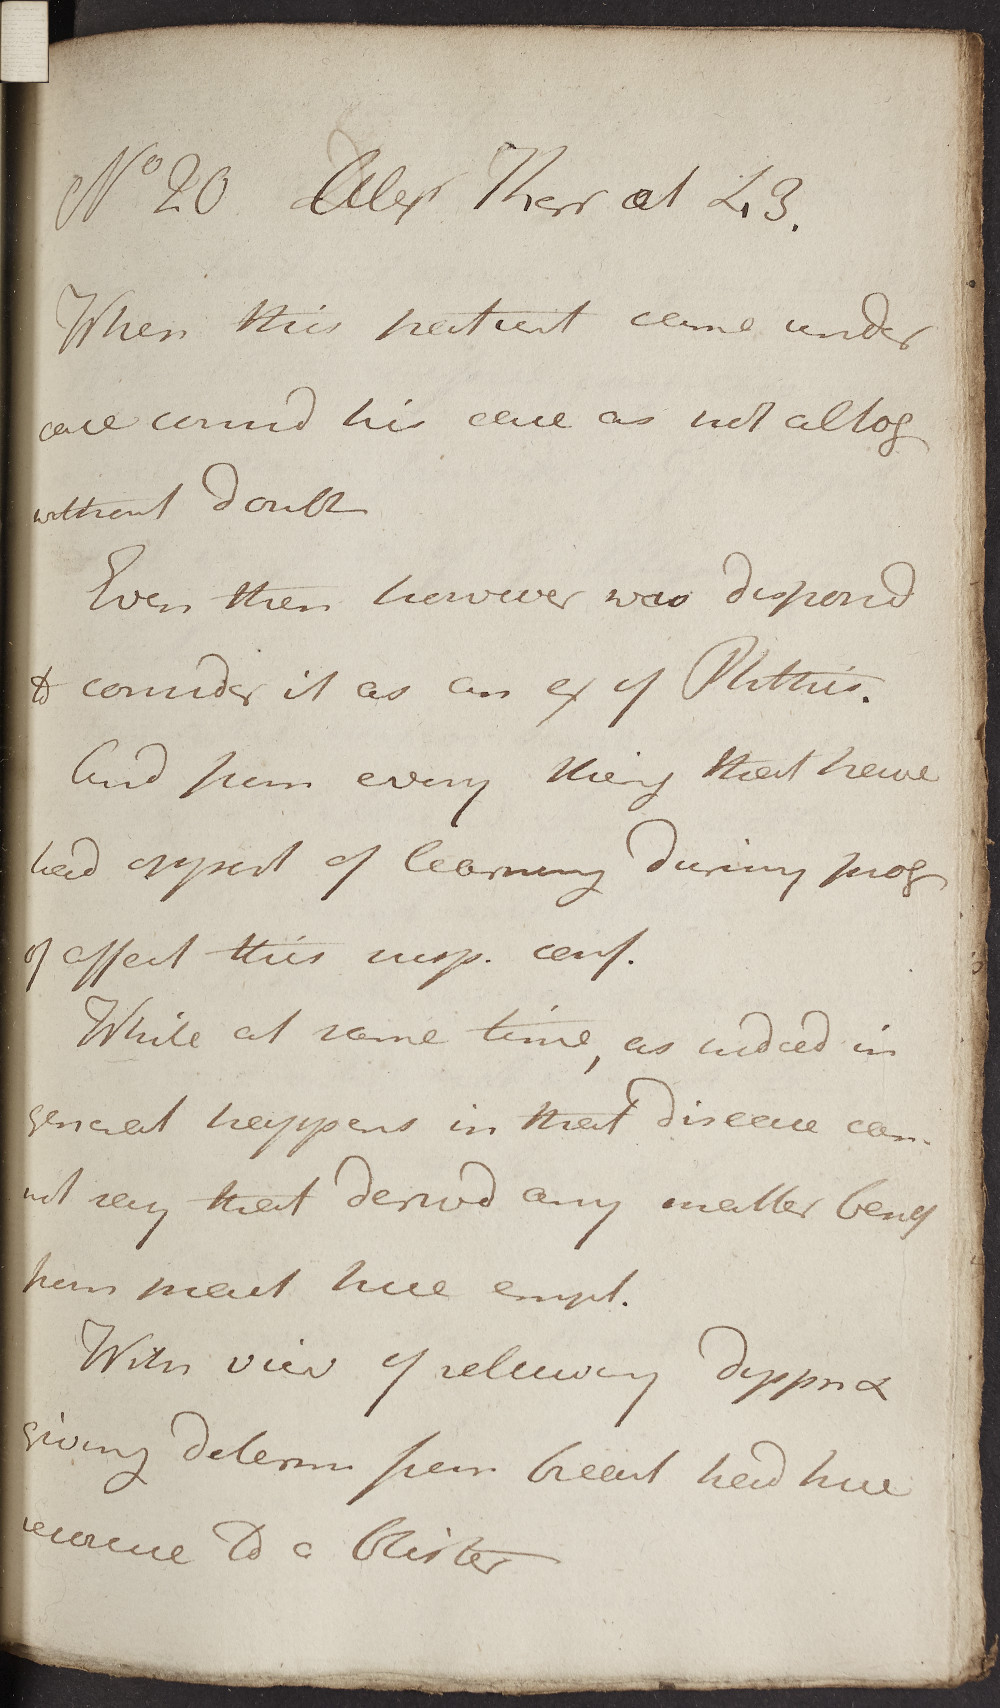 No 20 Alexr Kerr æt 43.
When this patient came under
care considd his case as not altog
without doubt
Even then however was disposd
to consider it as an ex of Phthisis.
And from every thing that have
had opport of learning during prog
of affect this susp. conf.
While at same time, as indeed in
general happens in that disease can
not say that derivd any matter benef
from pract here empl.
With view of relieving dyspn &
giving determ from breast had here
recourse to a blister